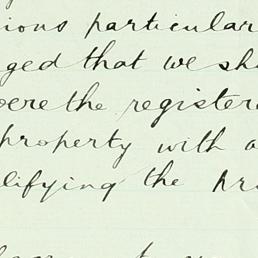 ious particular
ged that we sh
were the register
property with a
lifying the pr